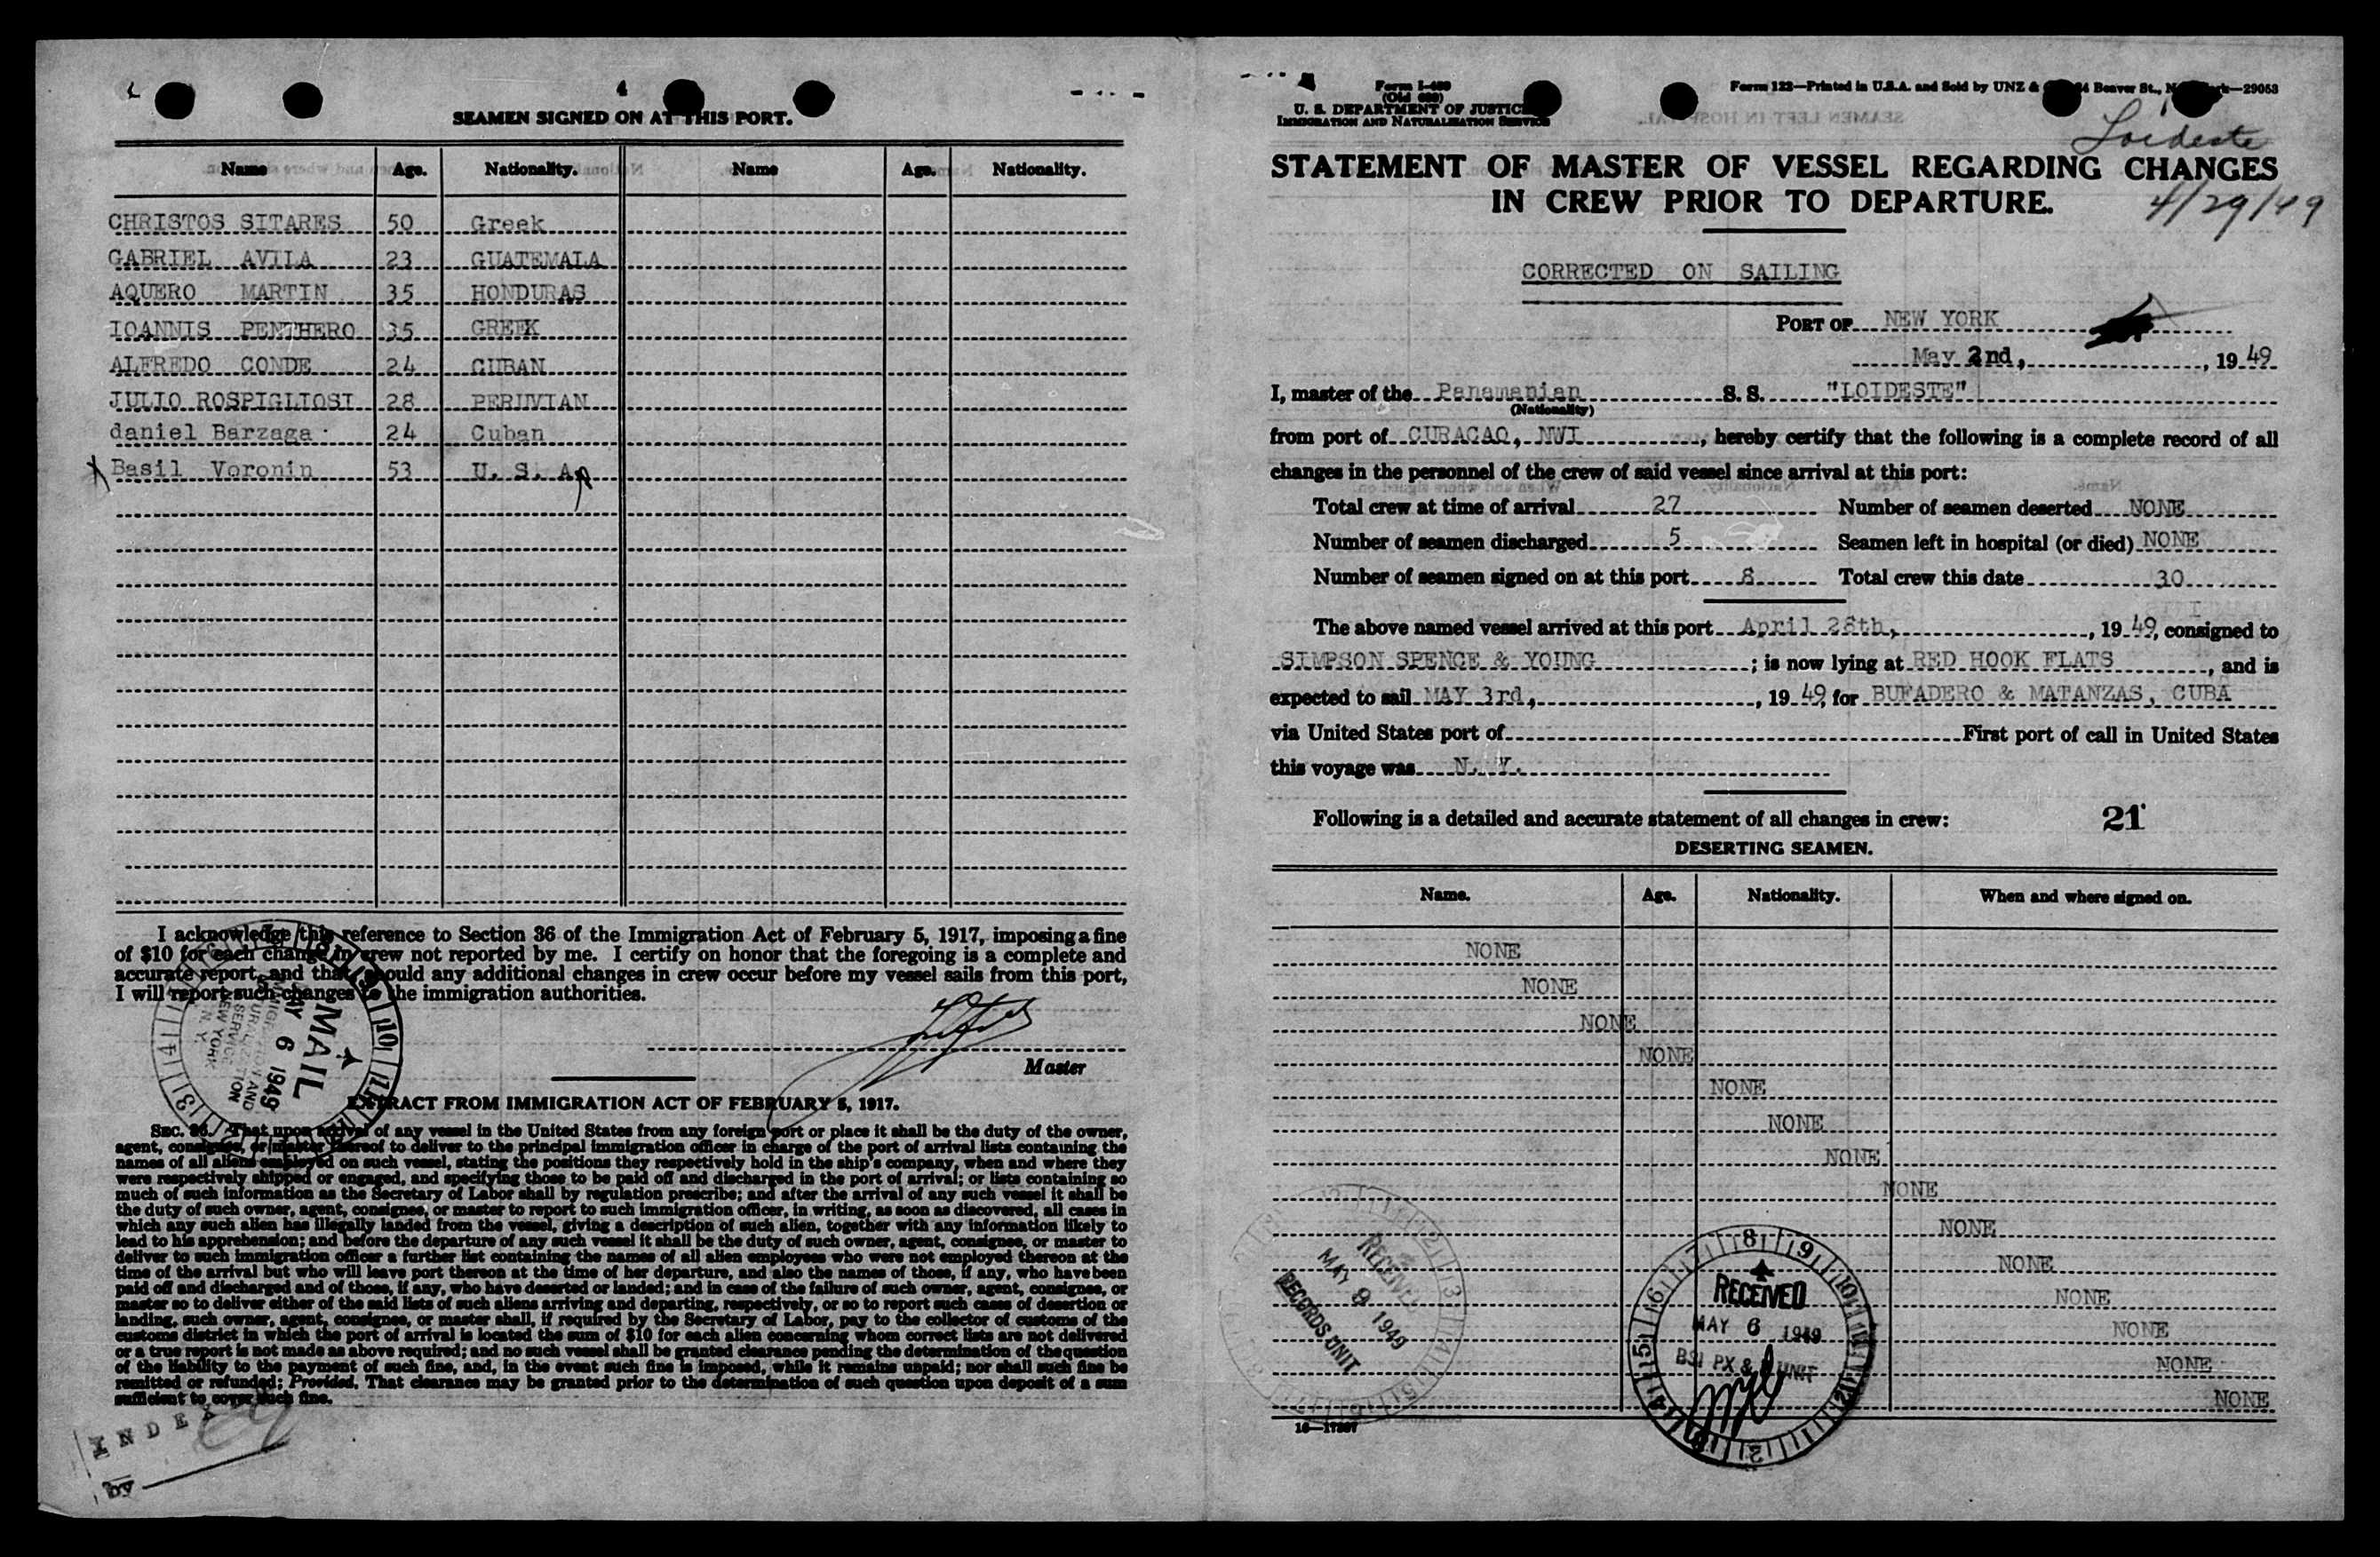 SEAMEN SIGNED ON AT THIS PORT.
Name Age. Nationality. Name Age. Nationality.
CHRISTOS SITARES 50 Greek
GABRIEL AVILA 23 GUATEMALA
AQUERO MARTIN 35 HONDURAS
IOANNIS PENTHERO 35 GREEK
ALFREDO CONDE 24 CUBAN
JULIO ROSPIGLIOSI 28 PERUVIAN
daniel Barzaga 24 Cuban
Basil Voronin 53 U. S. A
I acknowledge this reference to Section 36 of the Immigration Act of February 5, 1917, imposing a fine
of $10 for each change in crew not reported by me. I certify on honor that the foregoing is a complete and
accurate report, and that, should any additional changes in crew occur before my vessel sails from this port,
I will report such changes to the immigration authorities.
Master
MAIL
MAY 6 1949
IMMIGRATION AND
NATURALIZATION
SERVICE
NEW YORK
N. Y.
EXTRACT FROM IMMIGRATION ACT OF FEBRUARY 5, 1917.
SEC. 36. That upon arrival of any vessel in the United States from any foreign port or place it shall be the duty of the owner,
agent, consignee, or master thereof to deliver to the principal immigration officer in charge of the port of arrival lists containing the
names of all aliens employed on such vessel, stating the positions they respectively hold in the ship's company, when and where they
were respectively shipped or engaged, and specifying those to be paid off and discharged in the port of arrival; or lists containing so
much of such information as the Secretary of Labor shall by regulation prescribe; and after the arrival of any such vessel it shall be
the duty of such owner, agent, consignee, or master to report to such immigration officer, in writing, as soon as discovered, all cases in
which any such alien has illegally landed from the vessel, giving a description of such alien, together with any information likely to
lead to his apprehension; and before the departure of any such vessel it shall be the duty of such owner, agent, consignee, or master to
deliver to such immigration officer a further list containing the names of all alien employees who were not employed thereon at the
time of the arrival but who will leave port thereon at the time of her departure, and also the names of those, if any, who have been
paid off and discharged and of those, if any, who have deserted or landed; and in case of the failure of such owner, agent, consignee, or
master so to deliver either of the said lists of such aliens arriving and departing, respectively, or so to report such cases of desertion or
landing, such owner, agent, consignee, or master shall, if required by the Secretary of Labor, pay to the collector of customs of the
customs district in which the port of arrival is located the sum of $10 for each alien concerning whom correct lists are not delivered
or a true report is not made as above required; and no such vessel shall be granted clearance pending the determination of the question
of the liability to the payment of such fine, and, in the event such fine is imposed, while it remains unpaid; nor shall such fine be
remitted or refunded; Provided, That clearance may be granted prior to the determination of such question upon deposit of a sum
sufficient to cover such fine.
INDEX
by
Form I-489
(Old 689)
U. S. DEPARTMENT OF JUSTICE
IMMIGRATION AND NATURALIZATION SERVICE
Form 122—Printed in U.S.A. and Sold by UNZ & 24 Beaver St., N York—29053
Loideste
STATEMENT OF MASTER OF VESSEL REGARDING CHANGES
IN CREW PRIOR TO DEPARTURE.
4/29/49
CORRECTED ON SAILING
PORT OF NEW YORK
May 2nd, , 19 49
I, master of the Panamanian S. S. "LOIDESTE"
(Nationality)
from port of CURACAO, NWI , hereby certify that the following is a complete record of all
changes in the personnel of the crew of said vessel since arrival at this port:
Total crew at time of arrival 27 Number of seamen deserted NONE
Number of seamen discharged 5 Seamen left in hospital (or died) NONE
Number of seamen signed on at this port 8 Total crew this date 30
The above named vessel arrived at this port April 28th, , 19 49, consigned to
SIMPSON SPENCE & YOUNG ; is now lying at RED HOOK FLATS , and is
expected to sail MAY 3rd, , 19 49, for BUFADERO & MATANZAS, CUBA
via United States port of First port of call in United States
this voyage was N. Y.
Following is a detailed and accurate statement of all changes in crew: 21
DESERTING SEAMEN.
Name. Age. Nationality. When and where signed on.
NONE
NONE
NONE
NONE
NONE
NONE
NONE
NONE
NONE
NONE
NONE
NONE
NONE
NONE
RECEIVED
MAY 9 1949
RECORDS UNIT
RECEIVED
MAY 6 1949
BSI PX & UNIT